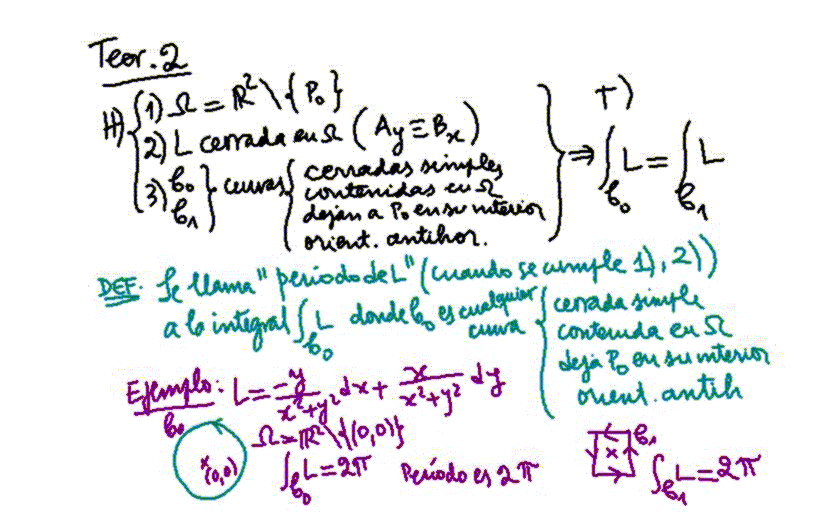 Teor. 2
H) 1) Ω = ℝ² \ {P₀}
2) L cerrada en Ω (Ay ≡ Bx)
3) 𝒞₀ 𝒞₁ } curvas { cerradas simples
contenidas en Ω
dejan a P₀ en su interior
orient. antihor.
⇒ T) ∫𝒞₀ L = ∫𝒞₁ L
DEF. Se llama "periodo de L" (cuando se cumple 1), 2))
a la integral ∫𝒞₀ L donde 𝒞₀ es cualquier curva { cerrada simple
contenida en Ω
deja P₀ en su interior
orient. antih
Ejemplo: L = -y/(x²+y²) dx + x/(x²+y²) dy
𝒞₀
Ω = ℝ² \ {(0,0)}
x (0,0)
∫𝒞₀ L = 2π Período es 2π
x 𝒞₁ ∫𝒞₁ L = 2π